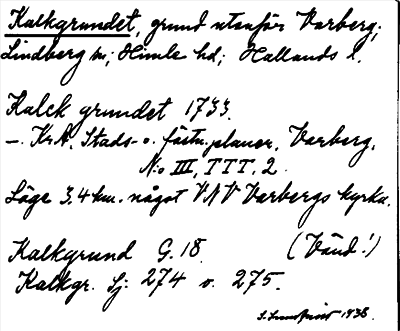 Kalkgrundet, grund utanför Varberg;
Lindberg sn; Himle hd; Hallands l.
Kalck grundet 1733.
—. KrA, Stads- o. fästn.planer, Varberg,
N:o III, TTT. 2.
Läge 3,4 km. något VNV Varbergs kyrka.
Kalkgrund G. 18. (Vänd!)
Kalkgr. Sj: 274 o. 275.
S. Lundqvist 1938.